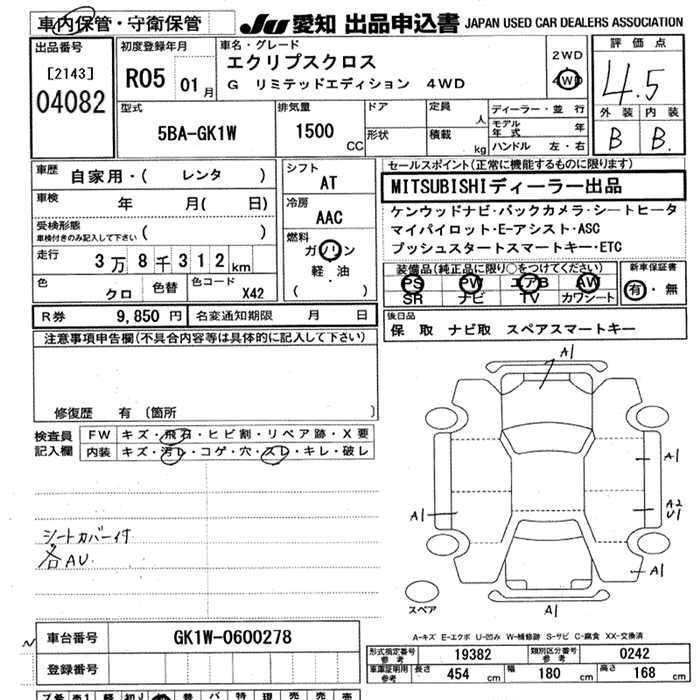 車内保管・守衛保管
JU 愛知 出品申込書 JAPAN USED CAR DEALERS ASSOCIATION
出品番号
[2143]
04082
初度登録年月
R05 01月
車名・グレード
エクリプスクロス
G リミテッドエディション 4WD
2WD
4WD
評価点
4.5
外装 内装
B B.
型式
5BA-GK1W
排気量
1500 CC
ドア
形状
定員 人
積載 kg
ディーラー・並行
モデル年式 年
ハンドル 左・右
車歴 自家用・( レンタ )
車検 年 月( 日)
受検形態
車検付きのみ記入して下さい ( )
走行 3万8千312km
色 クロ
色替
色コード X42
シフト
AT
冷房
AAC
燃料
ガソリン
軽・油
( )
R券 9,850円
名変通知期限 月 日
セールスポイント(正常に機能するものに限ります)
MITSUBISHIディーラー出品
ケンウッドナビ・バックカメラ・シートヒータ
マイパイロット・E-アシスト・ASC
プッシュスタートスマートキー・ETC
装備品(純正品に限り○をつけてください)
PS PW エアB AW
SR ナビ TV カワシート
新車保証書
有・無
後日品
保 取 ナビ取 スペアスマートキー
注意事項申告欄(不具合内容等は具体的に記入して下さい)
修復歴 有 (箇所 )
検査員
記入欄
FW キズ・飛石・ヒビ割・リペア跡・X要
内装 キズ・汚レ・コゲ・穴・スレ・キレ・破レ
シートカバー付
各AU.
A1
A1
A2
U1
A1
A1
A1
スペア
A-キズ E-エクボ U-凹み W-補修跡 S-サビ C-腐食 XX-交換済
車台番号 GK1W-0600278
登録番号
形式指定番号
参考
19382
類別区分番号
参考
0242
車庫証明寸法
参考
長さ 454 cm
幅 180 cm
高さ 168 cm